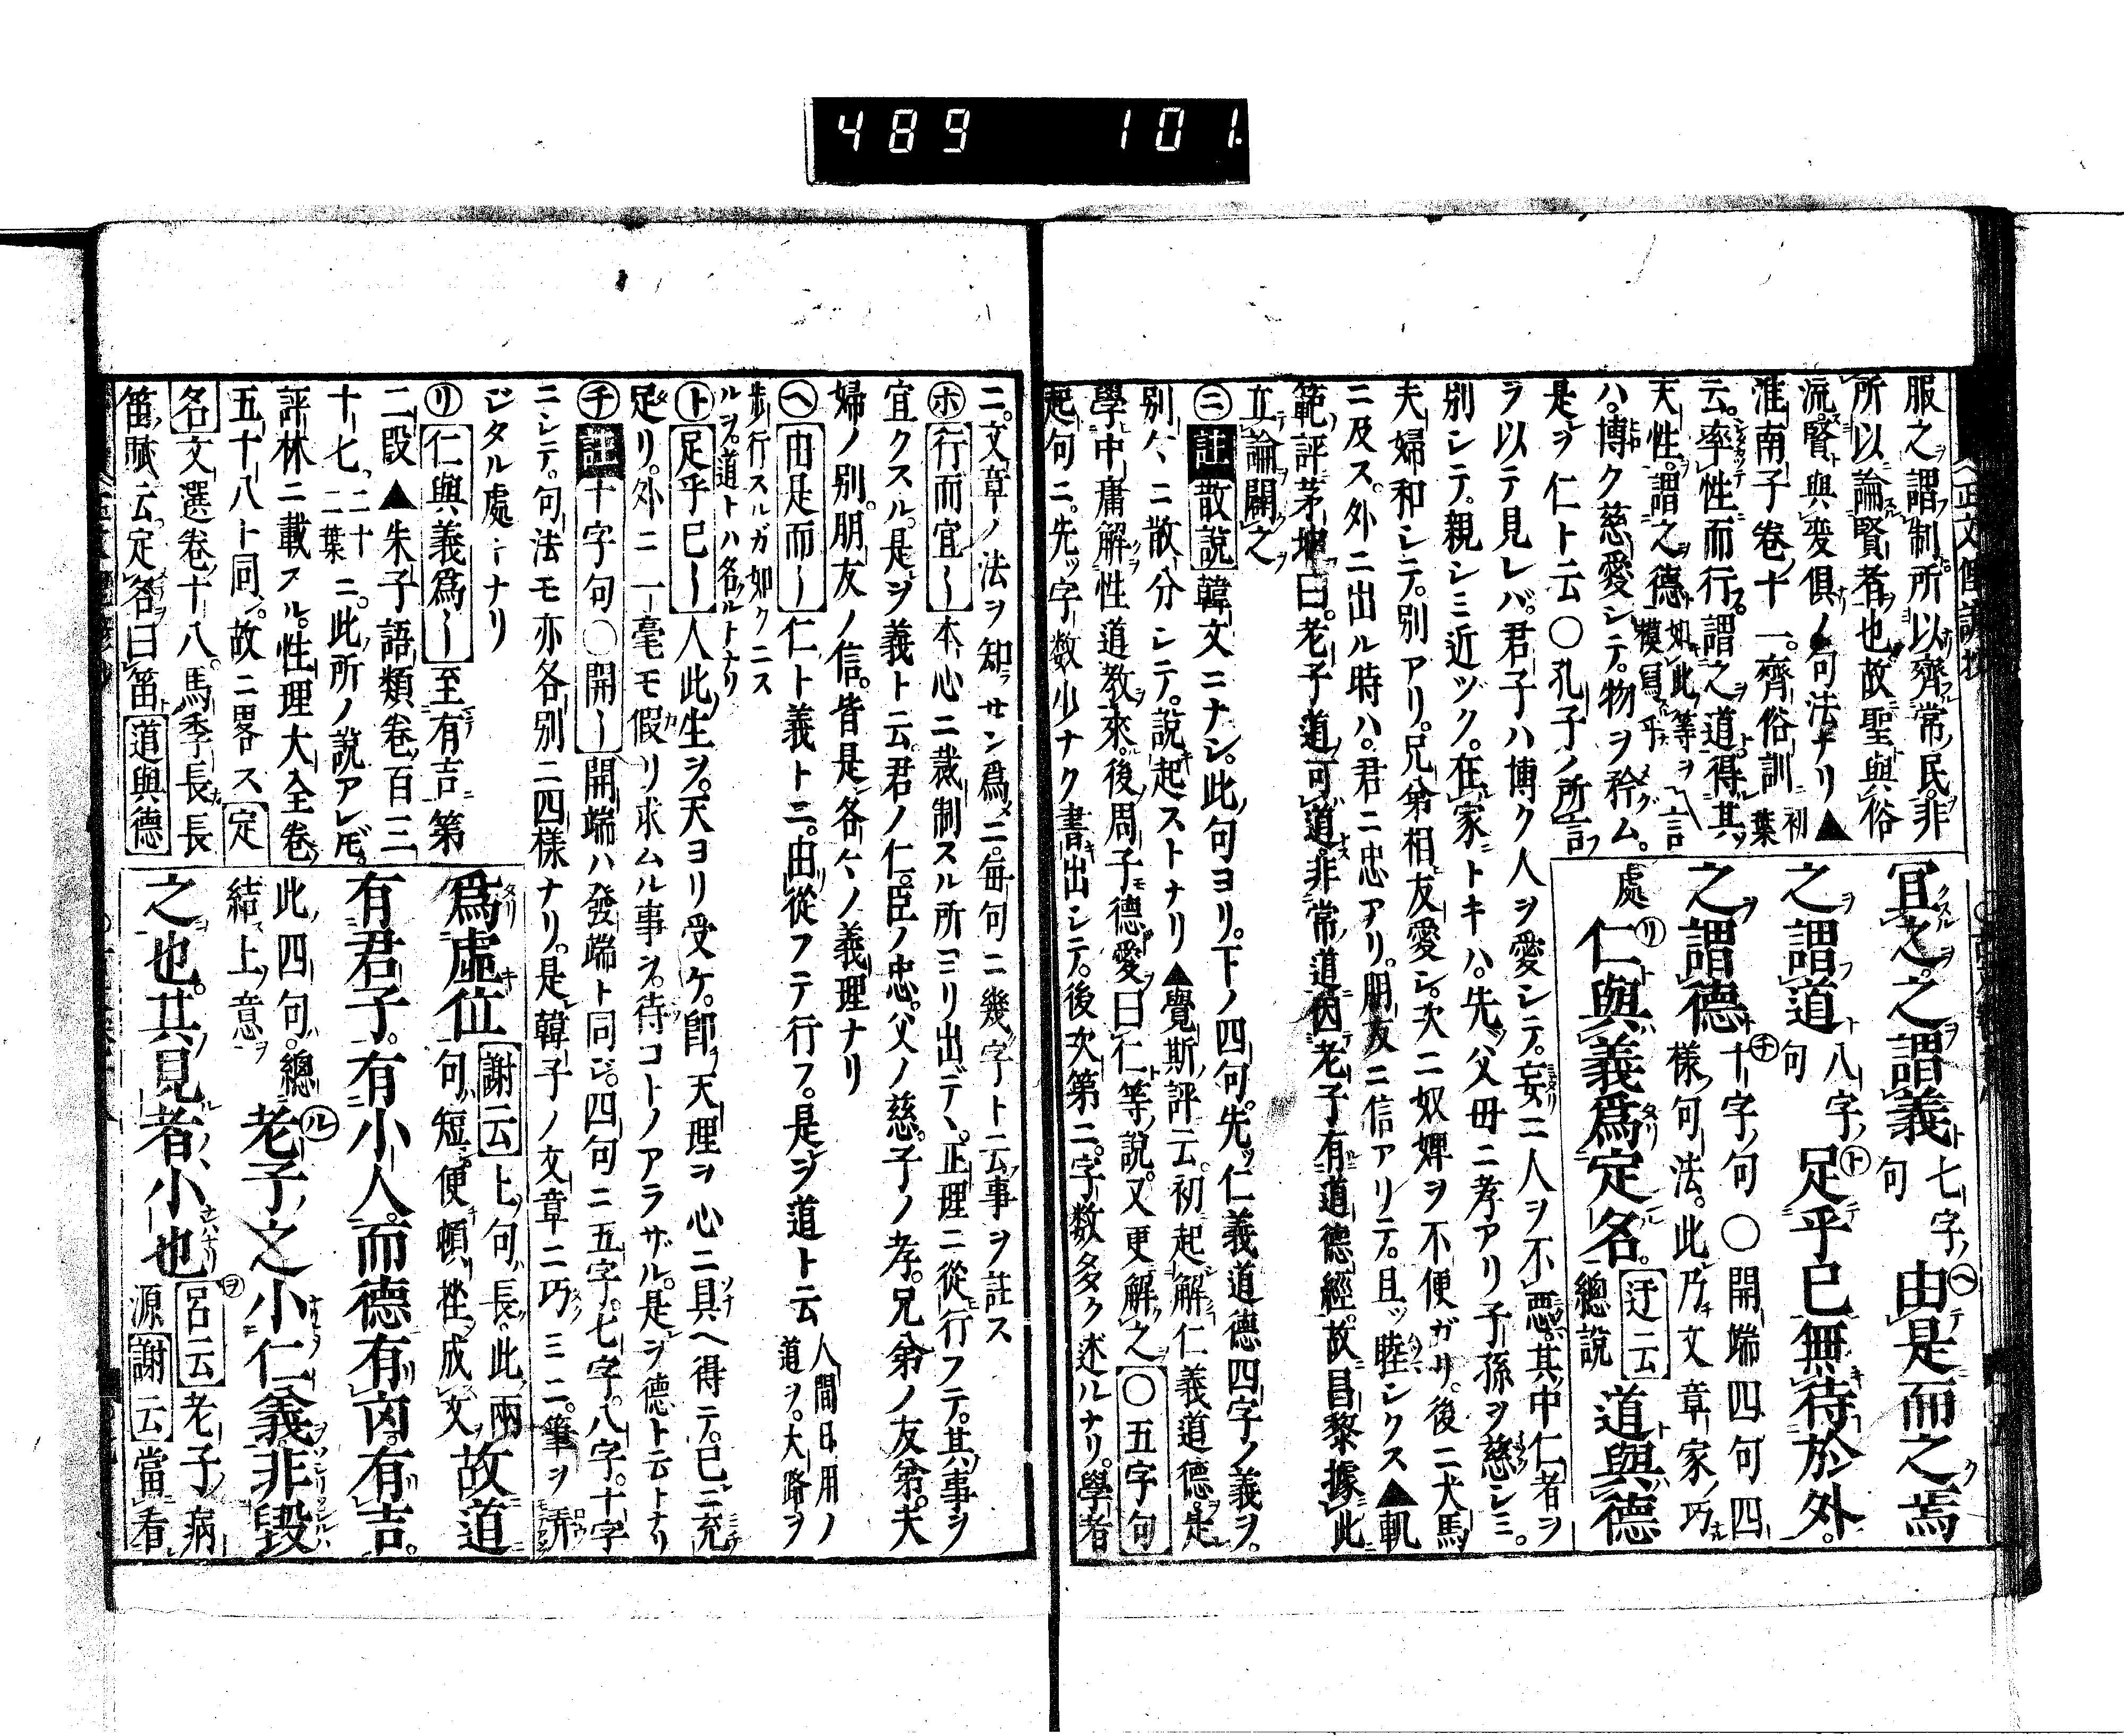 489 101.
服之謂制所以齊常民非
所以論賢者也故聖與俗
流賢與変俱ノ句法ナリ▲
淮南子卷十一齊俗訓初葉
云率性而行謂之道得其
天性謂之德如此等ヲ模寫乎言
ハ博ク慈愛シテ物ヲ矜ム
是ヲ仁ト云〇孔子ノ所言
宜之之謂義七字句由是而之焉
之謂道八字句足乎已無待於外
之謂德十字句〇開端四句四樣句法此乃文章家巧
處仁與義爲定名迂云總說道與德
ヲ以テ見レバ君子ハ博ク人ヲ愛シテ妄ニ人ヲ不惡其中仁者ヲ
別シテ親レミ近ヅク在家トキハ先父毋ニ孝アリ子孫ヲ慈シミ
夫婦和シテ別アリ兄弟相友愛シ次ニ奴婢ヲ不便ガリ後ニ犬馬
ニ及ス外ニ出ル時ハ君ニ忠アリ朋友ニ信アリテ且ッ睦シクス▲軌
範評茅坤曰老子道可道非常道因老子有道德經故昌黎據此
立論闢之
㊁註散說韓文ニナシ此句ヨリ下ノ四句先仁義道德四字ノ義ヲ
別々ニ散分シテ說起ストナリ▲覺斯評云初起解仁義道德是
學中庸解性道敎來後周子德愛曰仁等說又更解之〇五字句
起句ニ先ッ字数少ナク書出シテ後次第ニ字数多ク述ルナリ學者
ニ文章ノ法ヲ知サン爲ニ每句ニ幾字ト云事ヲ註ス
㋭行而宜〡本心ニ裁制スル所ヨリ出デヽ正理ニ從行フテ其事ヲ
宜クスル是ヲ義ト云君ノ仁臣ノ忠父ノ慈子ノ孝兄弟ノ友弟夫
婦ノ別朋友ノ信皆是各々ノ義理ナリ
㋬由是而〡仁ト義トニ由從フテ行フ是ヲ道ト云人間日用ノ道ヲ大路ヲ
歩行スルガ如クニスルヲ道トハ名ルトナリ
㋣足乎已〡人此生ヲ天ヨリ受ケ卽天理ヲ心ニ具ヘ得テ已ニ充
足リ外ニ一毫モ假リ求ムル事ヲ待コトノアラザル是ヲ德ト云トナリ
㋠註十字句〇開〡開端ハ發端ト同ジ四句ニ五字七字八字十字
ニシテ句法モ亦各別ニ四樣ナリ是韓子ノ文章ニ巧ミニ筆ヲ弄
ジタル處ナリ
㋷仁與義爲〡至有吉第
二段▲朱子語類卷百三
十七二十二葉ニ此所ノ說アレ𪜈
評林ニ載スル性理大全卷
五十八ト同シ故ニ畧ス定
名文選卷十八馬季長長
笛賦云定名曰笛道與德
爲虛位謝云上句長此兩句短便頓挫成文故道
有君子有小人而德有凶有吉
此四句總結上意老子之小仁義非毀
之也其見者小也呂云老子病源謝云當看